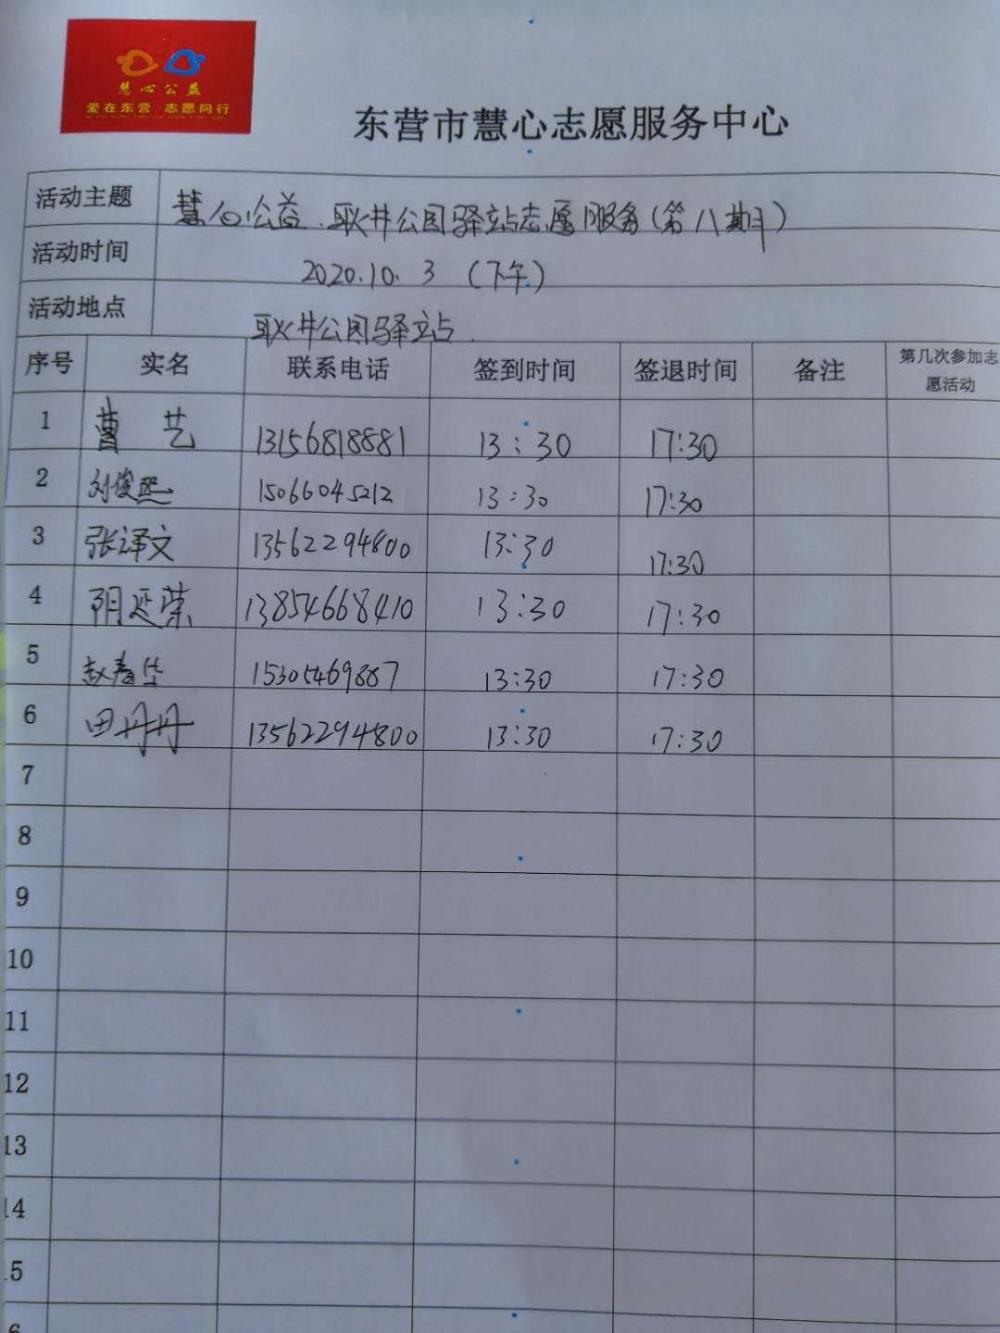 慧心公益
爱在东营 志愿同行
东营市慧心志愿服务中心
活动主题 慧心公益.耿井公园驿站志愿服务(第八期)
活动时间 2020.10.3 (下午)
活动地点 耿井公园驿站.
序号 实名 联系电话 签到时间 签退时间 备注 第几次参加志
愿活动
1 曹艺 13156818881 13:30 17:30
2 刘俊熙 15066045212 13:30 17:30
3 张译文 13562294800 13:30 17:30
4 阴延荣 13854668410 13:30 17:30
5 赵春华 15305469887 13:30 17:30
6 田丹丹 13562294800 13:30 17:30
7
8
9
10
11
12
13
14
15